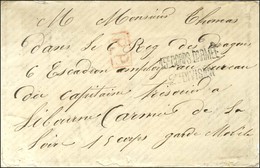 M Monsieur Thomas
dans le 6 Reg des Dragons
P.P.
6 Escadron employé au bureau
du capitaine trésorier à
Libourne (armée de la
Loire 15 corps garde Mobile